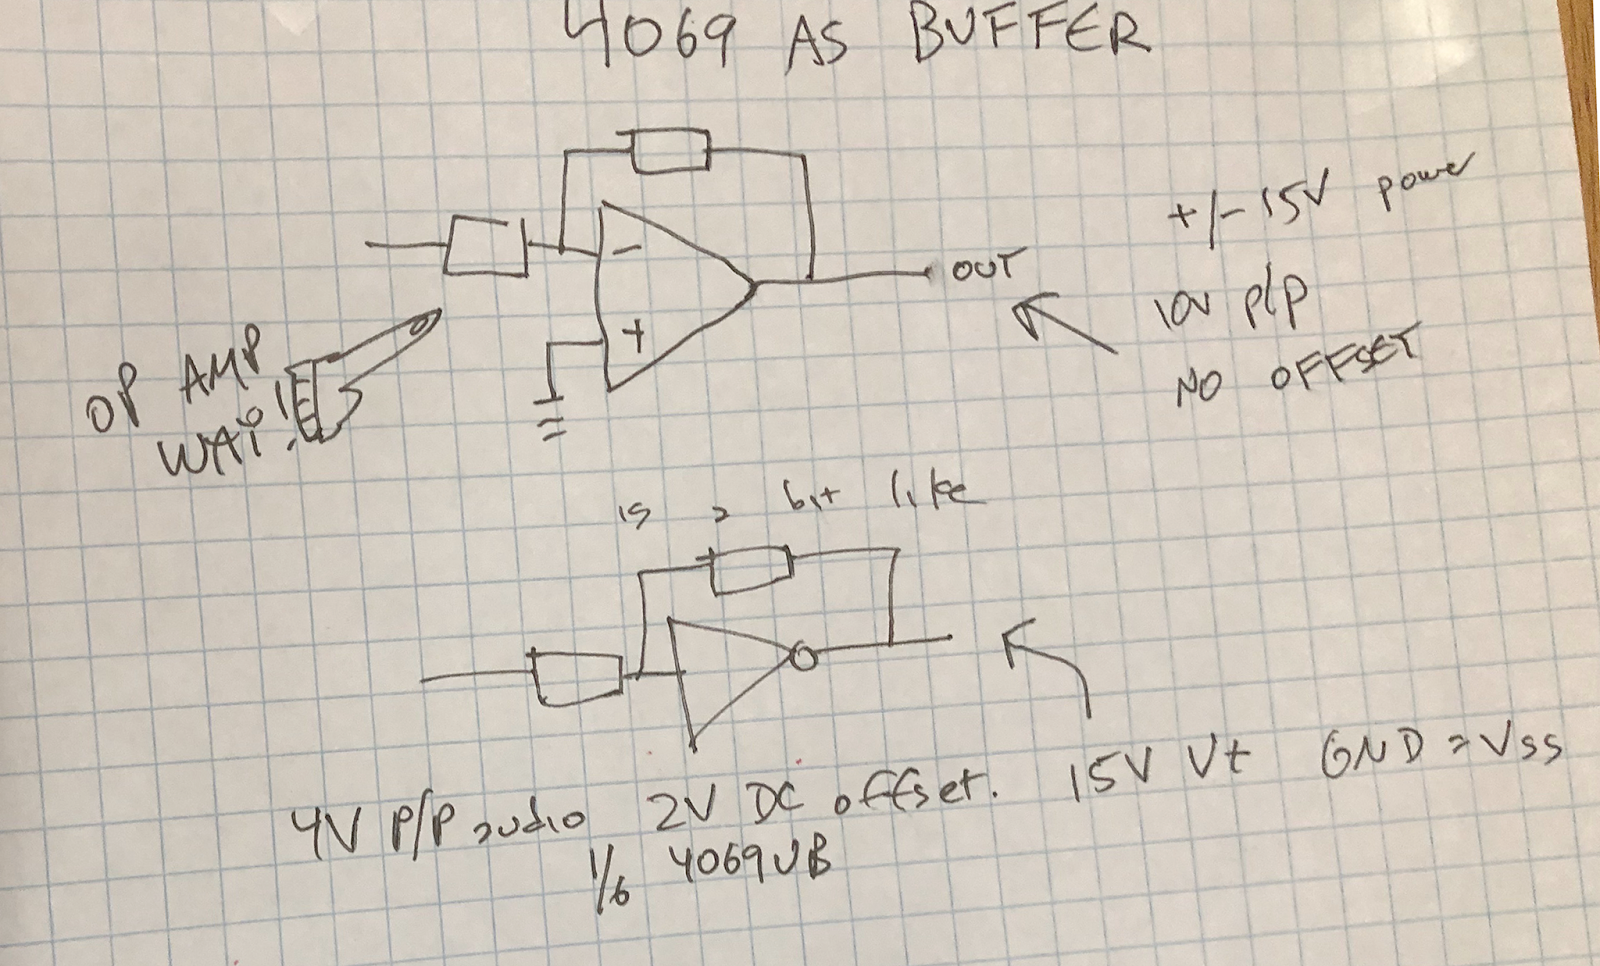 4069 AS BUFFER
+/- 15V power
10V P/P
NO OFFSET
- 
+
OUT
OP AMP
WAY!
is a bit like
15V V+ GND = VSS
4V P/P audio 2V DC offset.
1/6 4069UB